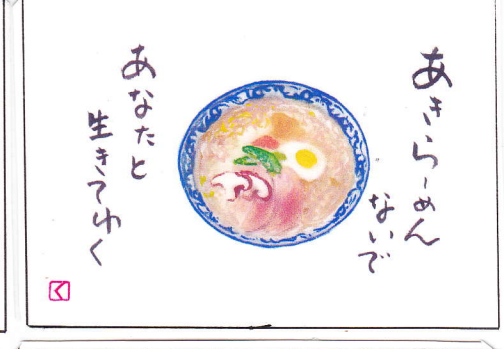 あきらーめん
ないで
あなたと
生きてゆく
く